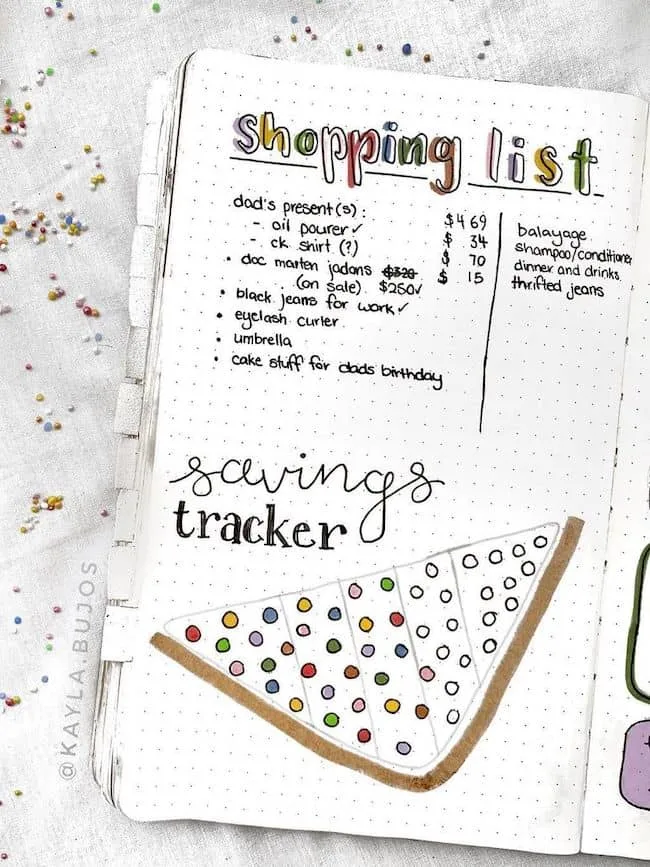 shopping list
dad's present(s):
- oil pourer ✓
- ck shirt (?)
• doc marten jadons $320
(on sale) $250 ✓
• black jeans for work ✓
• eyelash curler
• umbrella
• cake stuff for dads birthday
$469
$ 34
$ 70
$ 15
balayage
shampoo/conditioner
dinner and drinks
thrifted jeans
savings
tracker
@KAYLA.BUJOS